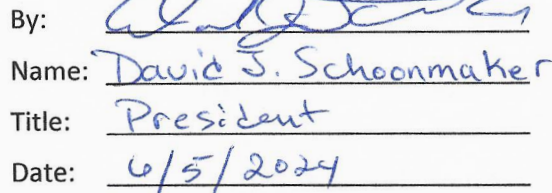 By:
Name: David J. Schoonmaker
Title: President
Date: 6/5/2024